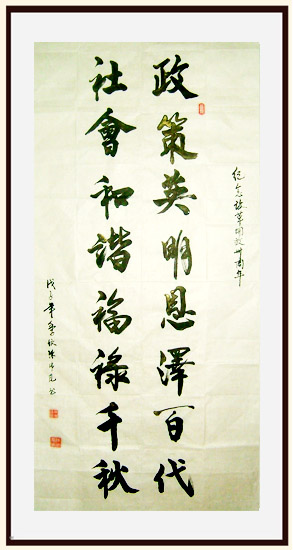 纪念改革開放卅周年
政策英明恩澤百代
社會和谐福禄千秋
戊子年季秋